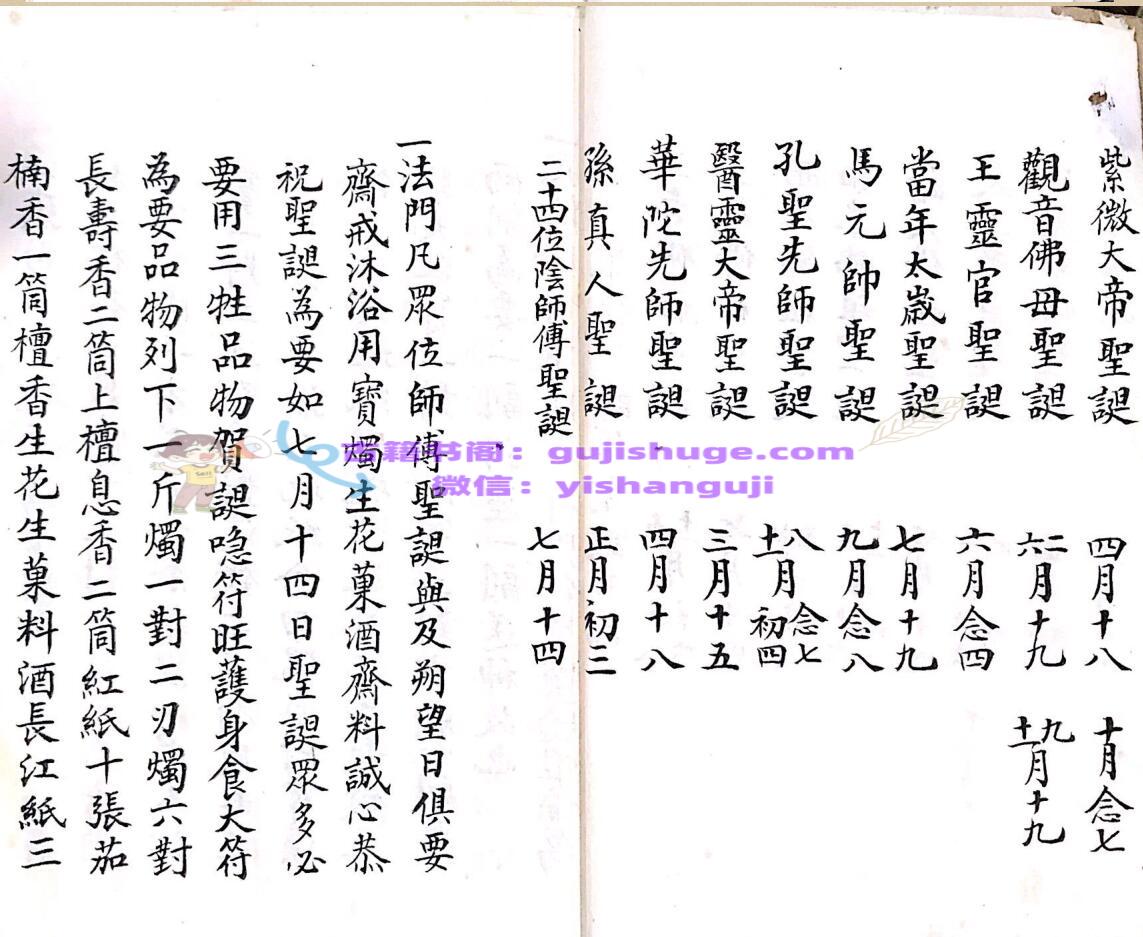 紫微大帝聖誔 四月十八 十月念七
觀音佛母聖誔 二六月十九 九十一月十九
王靈官聖誔 六月念四
當年太歲聖誔 七月十九
馬元帥聖誔 九月念八
孔聖先師聖誔 八十一月念七初四
醫靈大帝聖誔 三月十五
華陀先師聖誔 四月十八
孫真人聖誔 正月初三
二十四位陰師傅聖誔 七月十四
一法門凡眾位師傅聖誔與及朔望日俱要
齋戒沐浴用寶燭生花菓酒齋料誠心恭
祝聖誔為要如七月十四日聖誔眾多必
要用三牲品物賀誔隐符旺護身食大符
為要品物列下一斤燭一對二刃燭六對
長壽香二筒上檀息香二筒紅紙十張茄
楠香一筒檀香生花生菓料酒長江紙三
古籍书阁：gujishuge.com
微信：yishanguji